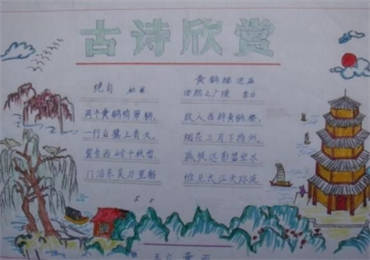 古诗欣赏
绝句 杜甫
两个黄鹂鸣翠柳,
一行白鹭上青天,
窗含西岭千秋雪,
门泊东吴万里船
黄鹤楼送孟
浩然之广陵 李白
故人西辞黄鹤楼,
烟花三月下扬州,
孤帆远影碧空尽
惟见长江天际流